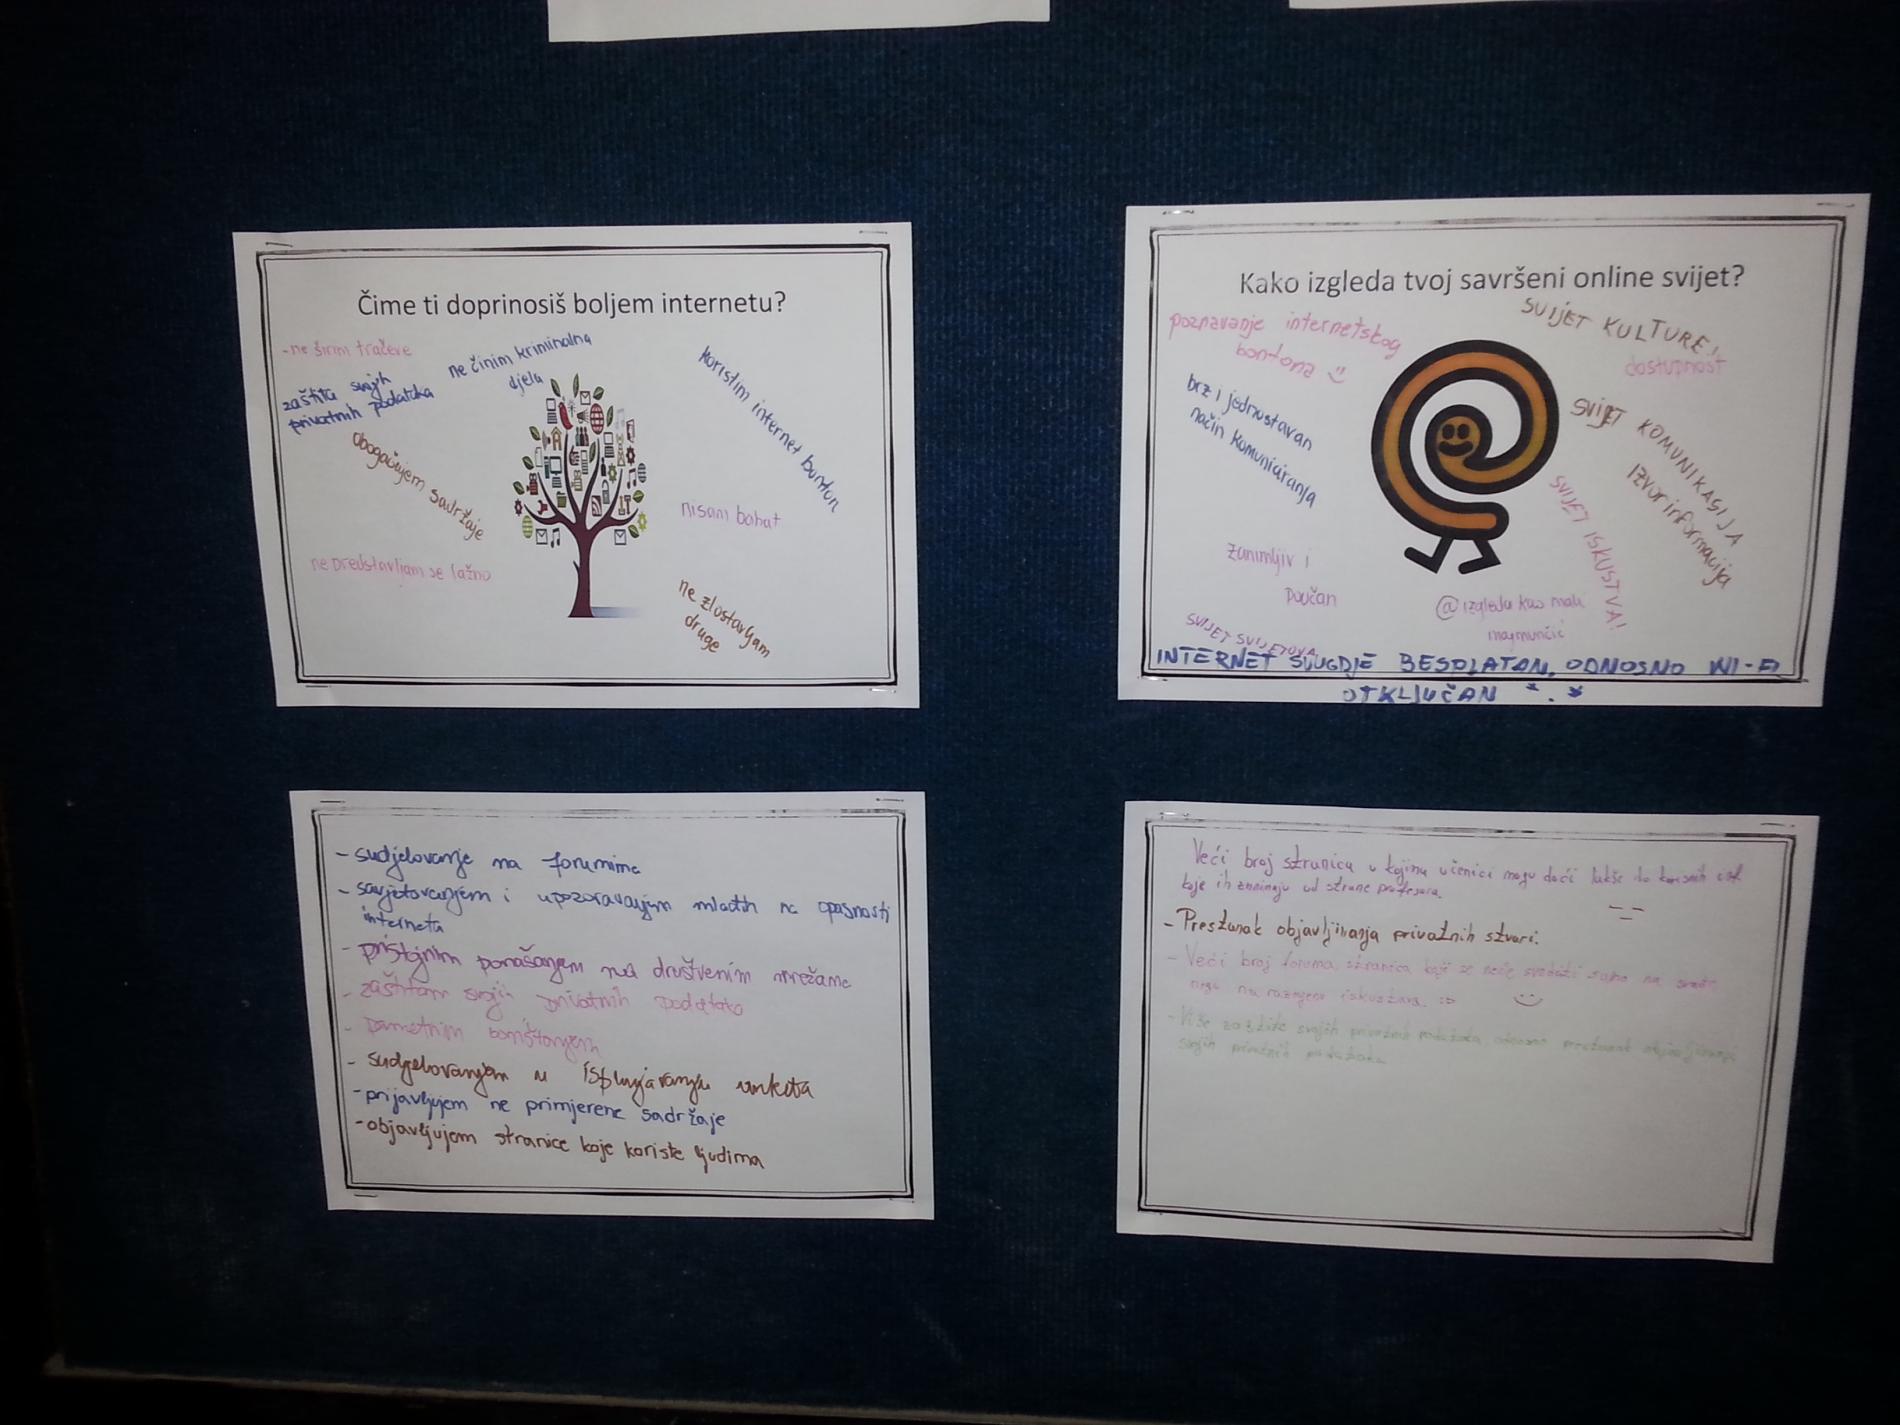 Čime ti doprinosiš boljem internetu?
-ne širim tračeve
ne činim kriminalna
djela
zaštita svojih
privatnih podataka
koristim internet bonton
obogaćujem sadržaje
nisam bahat
ne predstavljam se lažno
ne zlostavljam
druge
Kako izgleda tvoj savršeni online svijet?
SVIJET KULTURE!
poznavanje internetskog
bontona
dostupnost
brz i jednostavan
način komuniciranja
SVIJET KOMUNIKASIJA
Izvor informacija
SVIJET ISKUSTVA!
Zanimljiv i
poučan
@ izgleda kao mali
majmunčić
SVIJET SVIJETOVA
INTERNET SVUGDJE BESPLATAN, ODNOSNO WI-FI
OTKLJUČAN *.*
- sudjelovanje na forumima
- savjetovanjem i upozoravanjem mladih na opasnosti
interneta
- pristojnim ponašanjem na društvenim mrežama
- zaštitom svojih privatnih podataka
- pametnim korištenjem
- sudjelovanjem u ispunjavanju anketa
- prijavljujem ne primjerene sadržaje
- objavljujem stranice koje koriste ljudima
Veći broj stranica u kojima učenici mogu doći lakše do korisnih
koje ih zanimaju od strane profesora.
- Prestanak objavljivanja privatnih stvari.
- Veći broj foruma, stranica koji se neće svoditi samo na
nego na razmjenu iskustava. :)
- Više zaštite svojih privatnih podataka, odnosno prestanak objavljivanja
svojih privatnih podataka